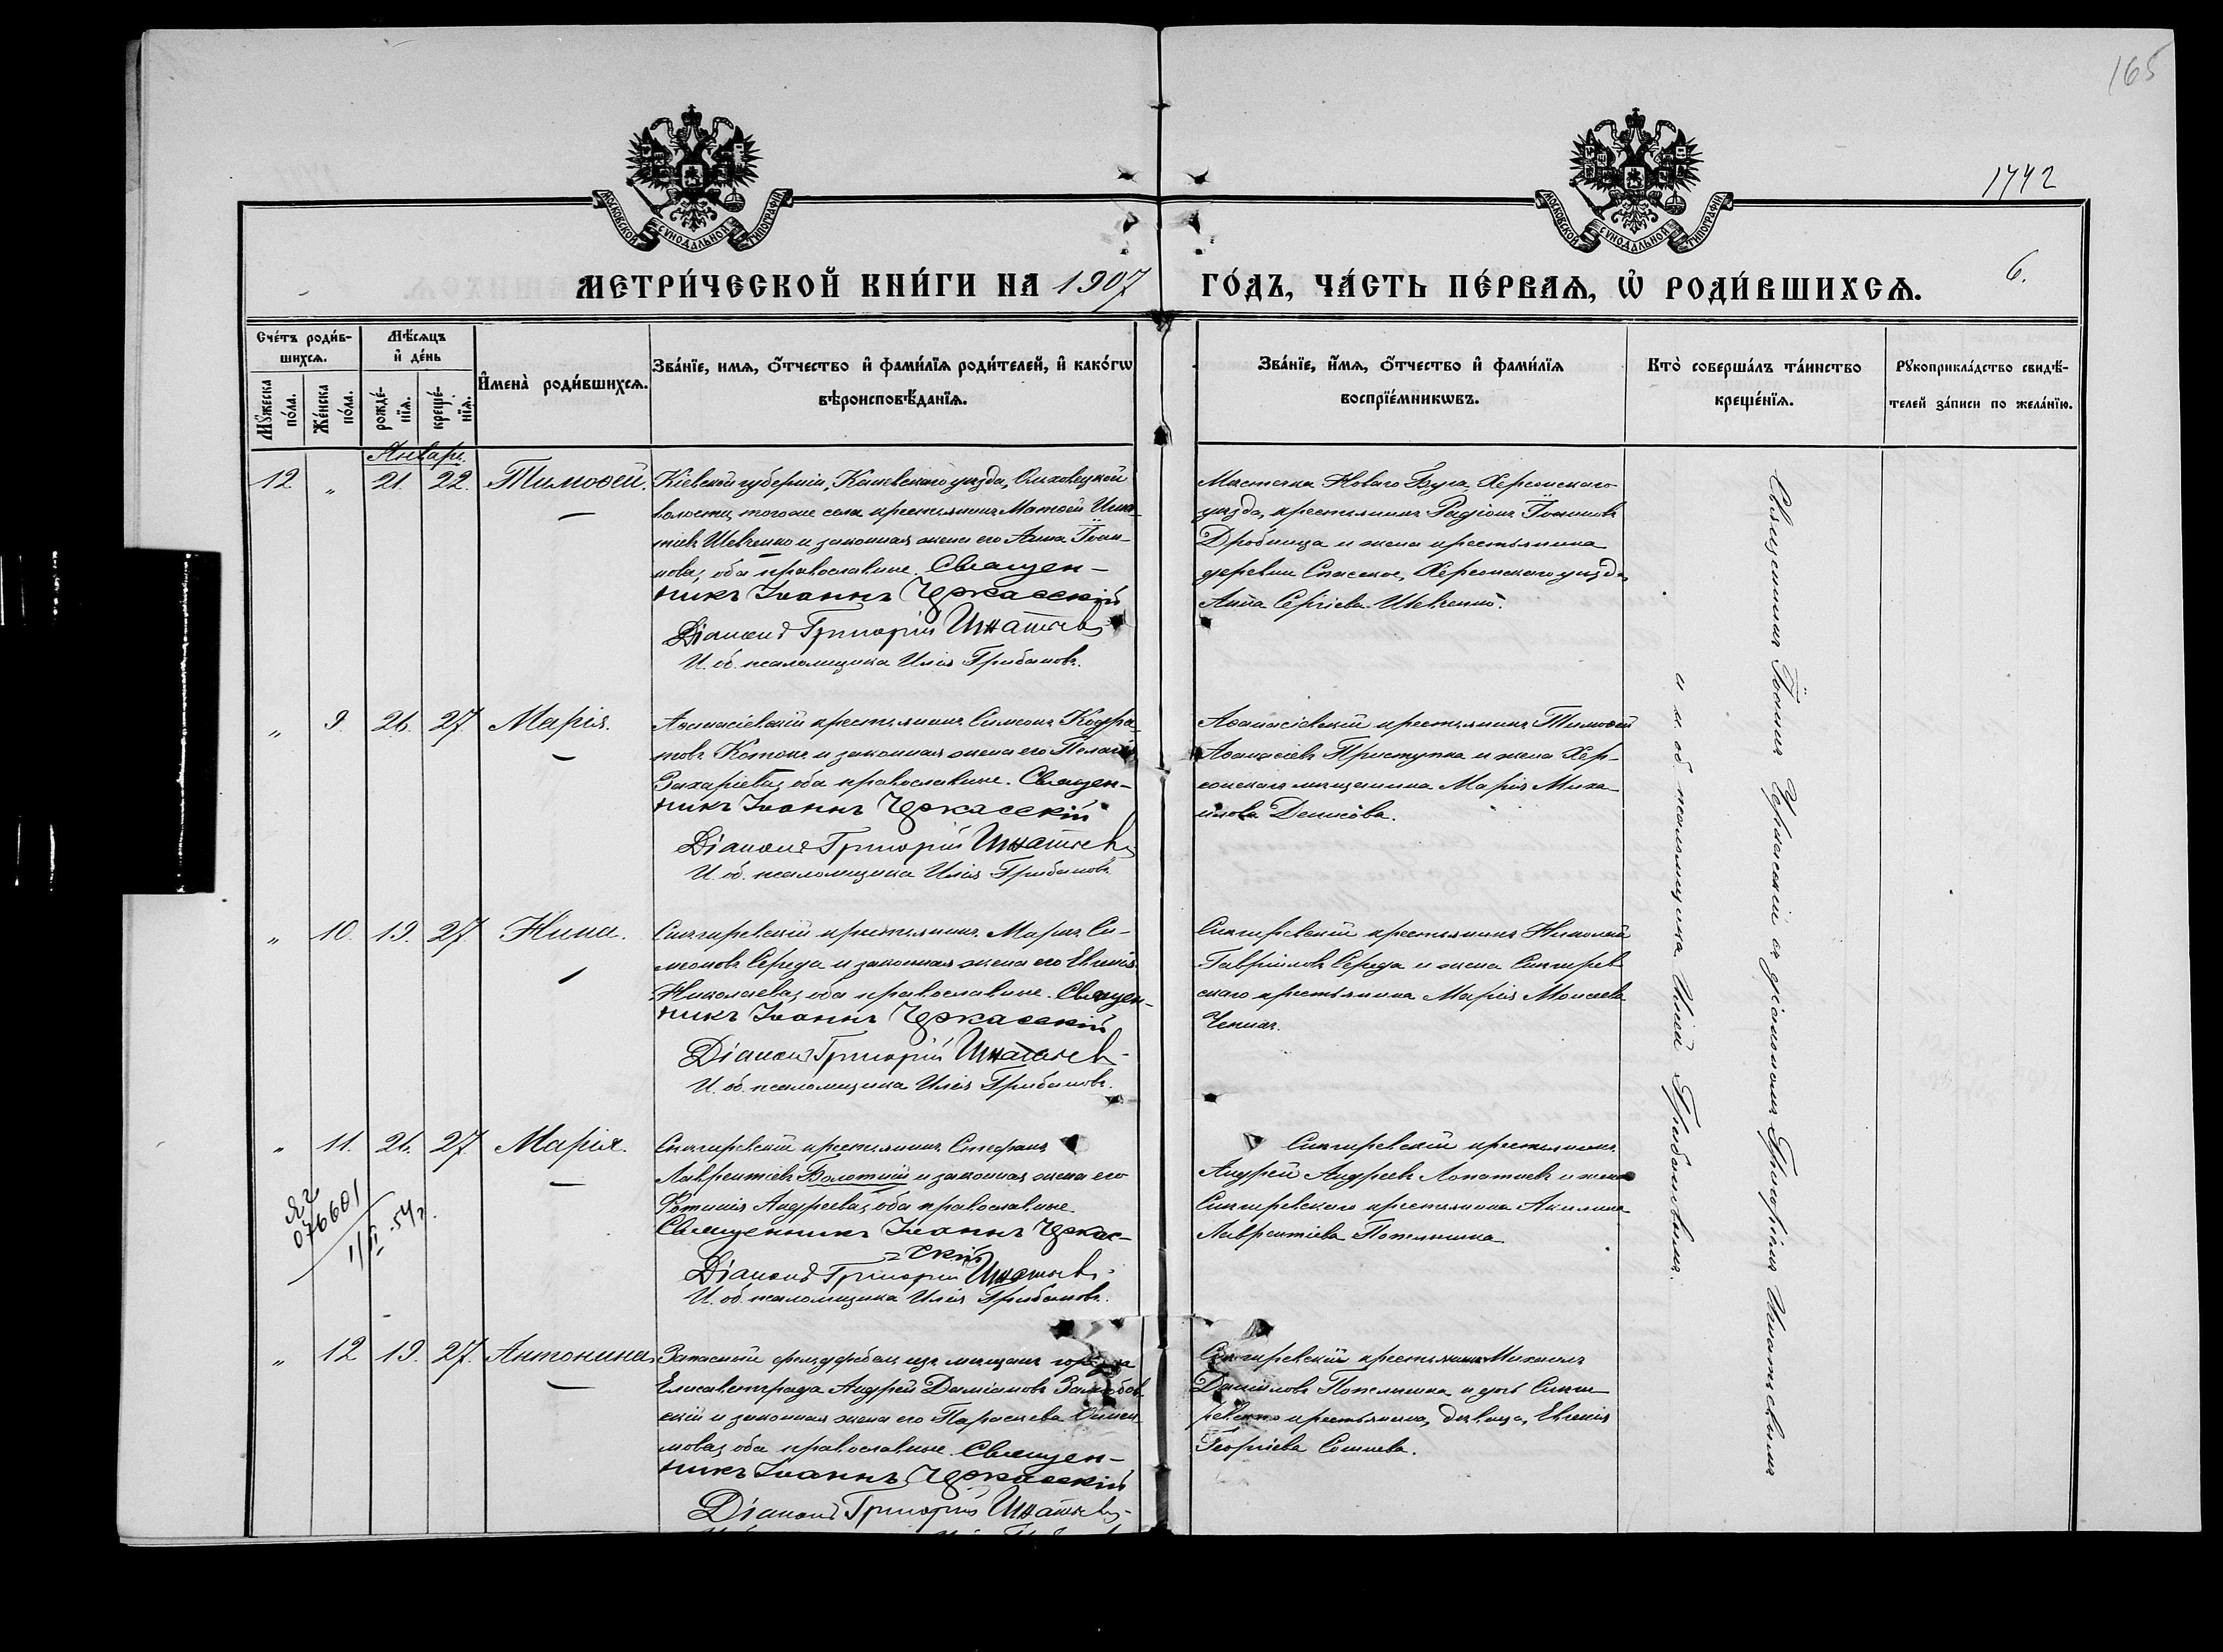 165
1742
МОСКОВСКОЙ СѴНОДАЛЬНОЙ ТИПОГРАФІИ
МОСКОВСКОЙ СѴНОДАЛЬНОЙ ТИПОГРАФІИ
МЕТРИ́ЧЕСКОЙ КНИ́ГИ НА 1907 ГО́ДЪ, ЧА́СТЬ ПЕ́РВАѦ, Ѡ РОДИ́ВШИХСѦ.
6.
Сче́тъ роди́в-
шихсѧ.
Мꙋ́жеска по́ла.
Же́нска по́ла.
Мѣ́сѧцъ
и҆ де́нь
рожде́-нїѧ.
креще́-нїѧ.
И҆мена̀ роди́вшихсѧ.
Зва́нїе, имѧ, ѻ҆́тчество и҆ фами́лїѧ роди́телей, и҆ како́гѡ
вѣроисповѣ́данїѧ.
Зва́нїе, и҆́мѧ, ѻ҆́тчество и҆ фами́лїѧ
воспрїе́мникѡвъ.
Кто̀ соверша́лъ та́инство
креще́нїѧ.
Рꙋкоприкла́дство свидѣ́-
телей за́писи по жела́нїю.
Январь.
12 „ 21. 22. Тимоѳей.
Кіевской губерніи, Каневскаго уѣзда, Ольховецкой
волости, того же села крестьянинъ Матѳей Игна-
тіевъ Шевченко и законная жена его Анна Іоан-
нова, оба православные. Священ-
никъ Іоаннъ Черкасскій
Діаконъ Григорій Игнатьевъ
И. об. псаломщика Илія Грибановъ.
Мѣстечка Новаго Буга, Херсонскаго
уѣзда, крестьянинъ Радіонъ Іоанновъ
Дробница и жена крестьянина
деревни Спасское, Херсонскаго уѣзда
Анна Сергіева Шевченко.
„ 9. 26. 27. Марія.
Аѳанасіевскій крестьянинъ Симеонъ Кодра-
товъ Котокъ и законная жена его Пелагія
Захаріева, оба православные. Священ-
никъ Іоаннъ Черкасскій
Діаконъ Григорій Игнатьевъ
И. об. псаломщика Илія Грибановъ
Аѳанасіевскій крестьянинъ Тимоѳей
Аѳанасіевъ Приступка и жена Хер-
сонскаго мѣщанина Марія Миха-
илова Денисова.
„ 10. 19. 27. Нина.
Снигиревскій крестьянинъ Маркъ Си-
меоновъ Середа и законная жена его Евгенія
Николаева, оба православные. Священ-
никъ Іоаннъ Черкасскій
Діаконъ Григорій Игнатьевъ
И. об. псаломщика Илія Грибановъ.
Снигиревскій крестьянинъ Николай
Гавріиловъ Середа и жена Снигирев-
скаго крестьянина Марія Моисеева
„ 11. 26. 27. Марія.
076601
1/II 54 г.
Снигиревскій крестьянинъ Стефанъ
Лаврентіевъ Болотній и законная жена его
Фотинія Андреева, оба православные.
Священникъ Іоаннъ Черкас-
скій
Діаконъ Григорій Игнатьевъ
И. об. псаломщика Илія Грибановъ.
Снигиревскій крестьянинъ
Андрей Андреевъ Лопатневъ и жена
Снигиревскаго крестьянина Акилина
Лаврентіева
„ 12 19. 27. Антонина.
Запасный фельдфебель изъ мѣщанъ города
Елисаветграда Андрей Даміановъ
и законная жена его Параскева
оба православные. Священ-
никъ Іоаннъ Черкасскій
Діаконъ Григорій Игнатьевъ
Снигиревскій крестьянинъ Михаилъ
Даніиловъ и дочь Сниги-
ревскаго крестьянина, дѣвица, Евгенія
Георгіева
Священникъ Іоаннъ Черкасскій съ діакономъ Григоріемъ Игнатьевымъ
и и. об. псаломщика Иліей Грибановымъ.